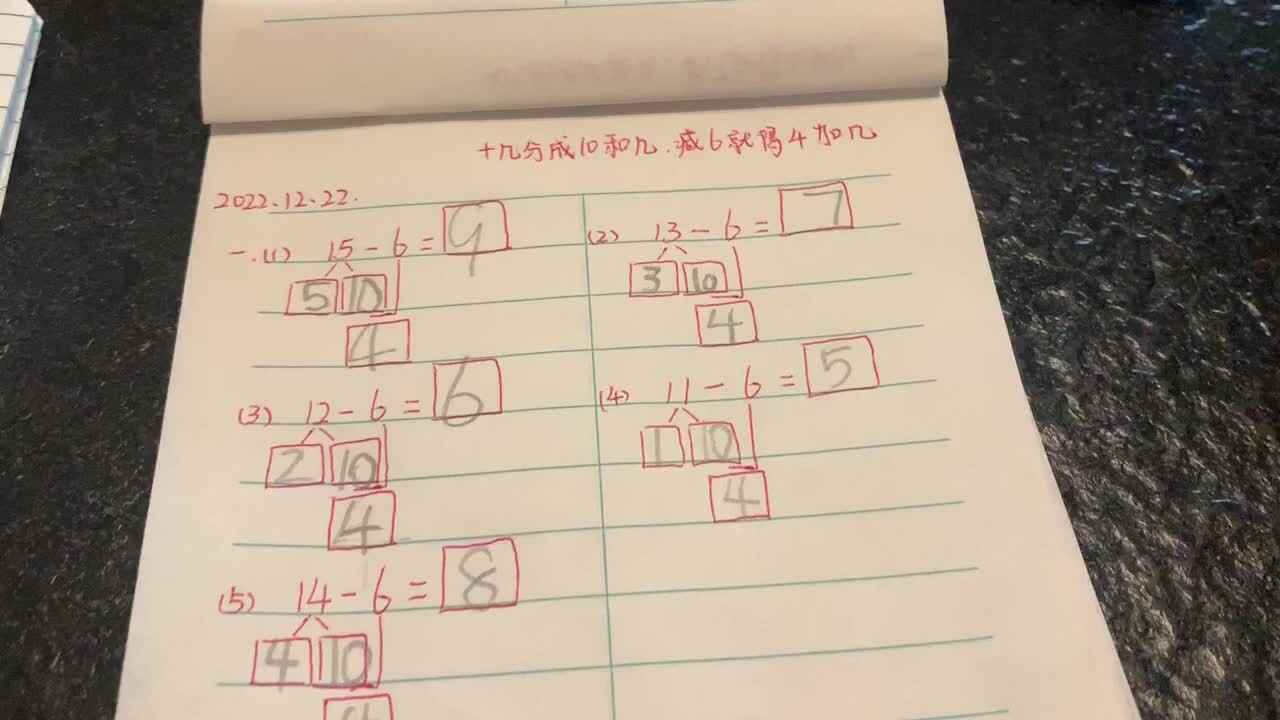 十几分成10和几.减6就得4加几
2022.12.22.
一.(1) 15-6=9 (2) 13-6=7
5 10 3 10
4 4
(3) 12-6=6 (4) 11-6=5
2 10 1 10
4 4
(5) 14-6=8
4 10
4